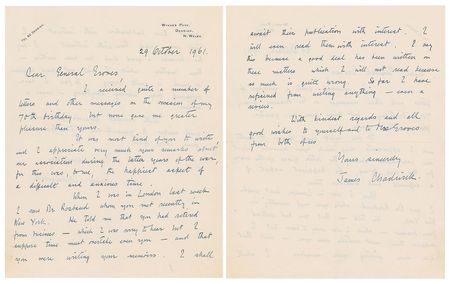 TEL. 80 DENBIGH.
WYGFAIR PARC,
DENBIGH,
N. WALES.
29 October 1961.
Dear General Groves,
I received quite a number of
letters and other messages on the occasion of my
70th birthday but none gave me greater
pleasure than yours.
It was most kind of you to write
and I appreciate very much your remarks about
our association during the latter years of the war,
for this was, to me, the happiest aspect of
a difficult and anxious time.
When I was in London last week
I saw Dr Rosbaud whom you met recently in
New York. He told me that you had retired
from business – which I was sorry to hear but I
suppose time must overtake even you – and that
you were writing your memoirs. I shall
await their publication with interest. I
will even read them with interest. I say
this because a good deal has been written on
these matters which I will not read because
so much is quite wrong. So far I have
refrained from writing anything – even a
review.
With kindest regards and all
good wishes to yourself and to Mrs Groves
from both of us
Yours sincerely
James Chadwick.